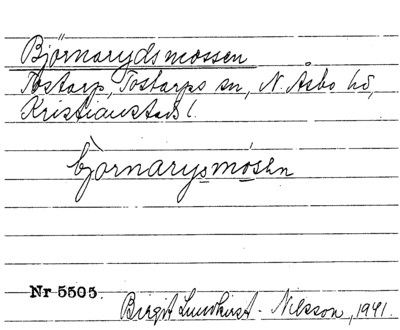 Björnarydsmossen
Tostarp, Tostarps sn, N. Åsbo hd,
Kristianstads l.
bjòrnarysmósen
Nr 5505.
Birgit Lundkvist-Nilsson, 1941.